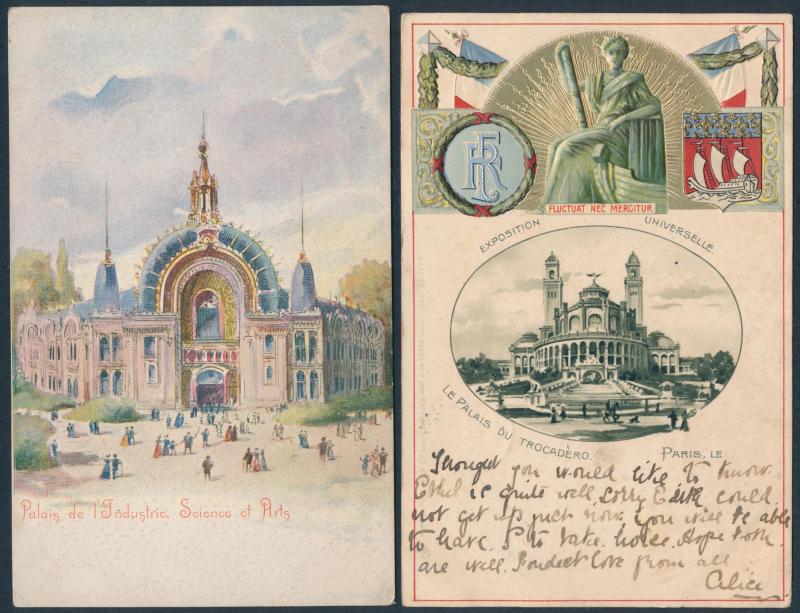 Palais de l'Industrie, Science et Arts
RF
FLUCTUAT NEC MERGITUR
EXPOSITION UNIVERSELLE.
LE PALAIS DU TROCADÈRO.
PARIS, LE
Thought you would like to know
Ethel is quite well, sorry Edith could
not get up just now. You will be able
to have to take. Hope both
are well. Fondest love from all
Alice